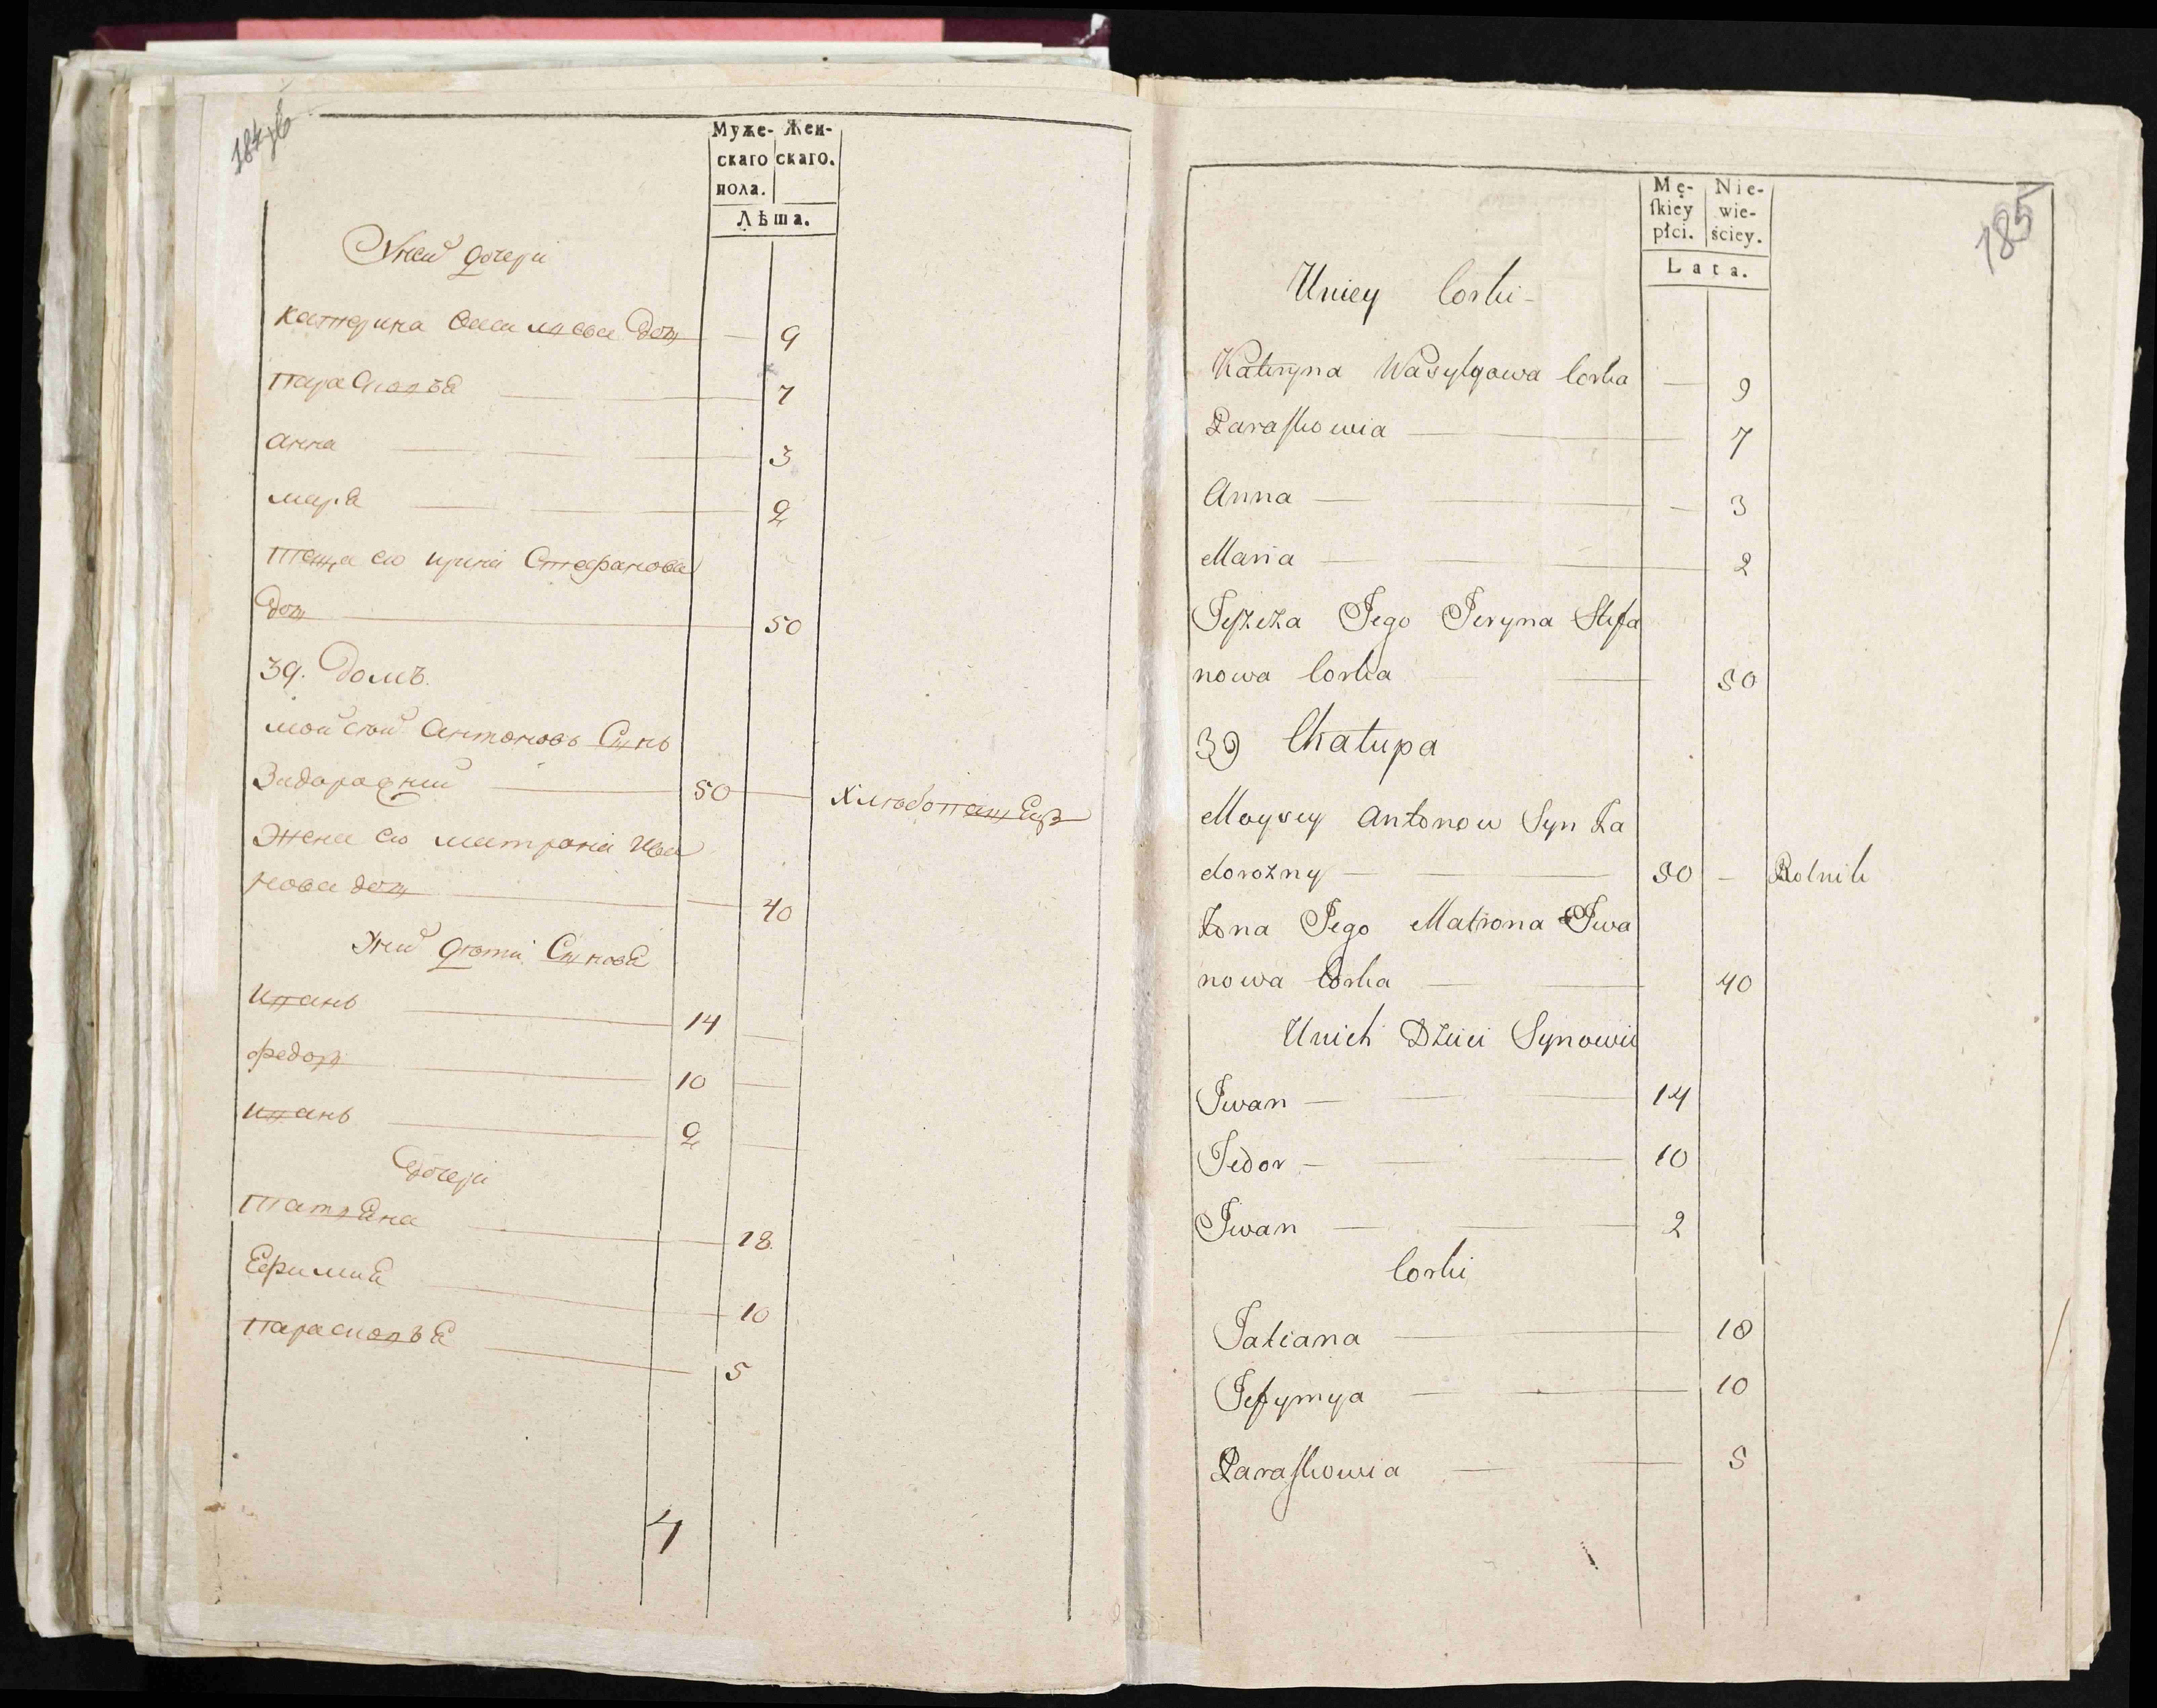 184об
Муже- Жен-
скаго скаго.
пола.
Лѣта.
Унеи дочери
Катерина Василева доч — 9
Парасковъя — 7
Анна — 3
Маря — 2
Теща его Ирина Стефанова
доч — 50
39. Домъ.
Мойсей Антоновъ Сынъ
Задорожний — 50 — Хлѣбопашецъ
Жена его Матрона Ива
нова доч — 40
Унихъ дѣти Сыновя
Иванъ — 14 —
Федоръ — 10 —
Иванъ — 2 —
Дочери
Татяна — 18.
Ефимия — 10
Парасковъя — 5
4
185
Mę- Nie-
ſkiey wie-
płci. ściey.
Lata.
Uniey Corki -
Kateryna Wasylowa Corka — 9
Paraſkowia — 7
Anna — 3
Maria — 2
Teſzcza Jego Jeryna Stefa
nowa Corka — 50
39 Chatupa
Moysey Antonow Syn Za
dorożny — 50 — Rolnik
Zona Jego Matrona Iwa
nowa Corka — 40
Unich Dzieci Synowie
Iwan — 14
Fedor — 10
Iwan — 2
Corki
Tatiana — 18
Jefymya — 10
Paraſkowia — 5